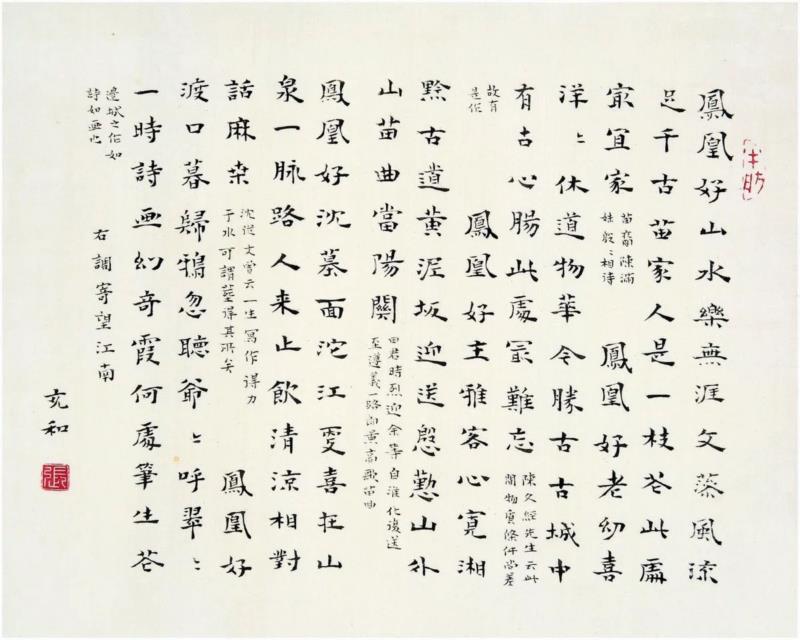 鳳凰好山水樂無涯文藻風流
足千古苗家人是一枝花此處
㝡宜家
苗裔陳滿
妹殷〻相待
鳳凰好老幼喜
洋〻休道物華今勝古古城中
有古心腸此處㝡難忘
陳久經先生云此
間物質條件尚差
故有
是作
鳳凰好主雅客心寬湘
黔古道黃泥坂迎送慇懃山外
山苗曲當陽關
田君時烈迎余等自淮化復送
至遵義一路高歌苗曲
鳳凰好沈墓面沱江更喜在山
泉一脉路人来止飲清涼相對
話麻桒
沈從文嘗云一生寫作得力
于水可謂葬得其所矣
鳳凰好
渡口暮歸鴉忽聽爺〻呼翠〻
一時詩畫幻奇霞何處筆生花
邊城之作如
詩如畫也
右調寄望江南
充和
張